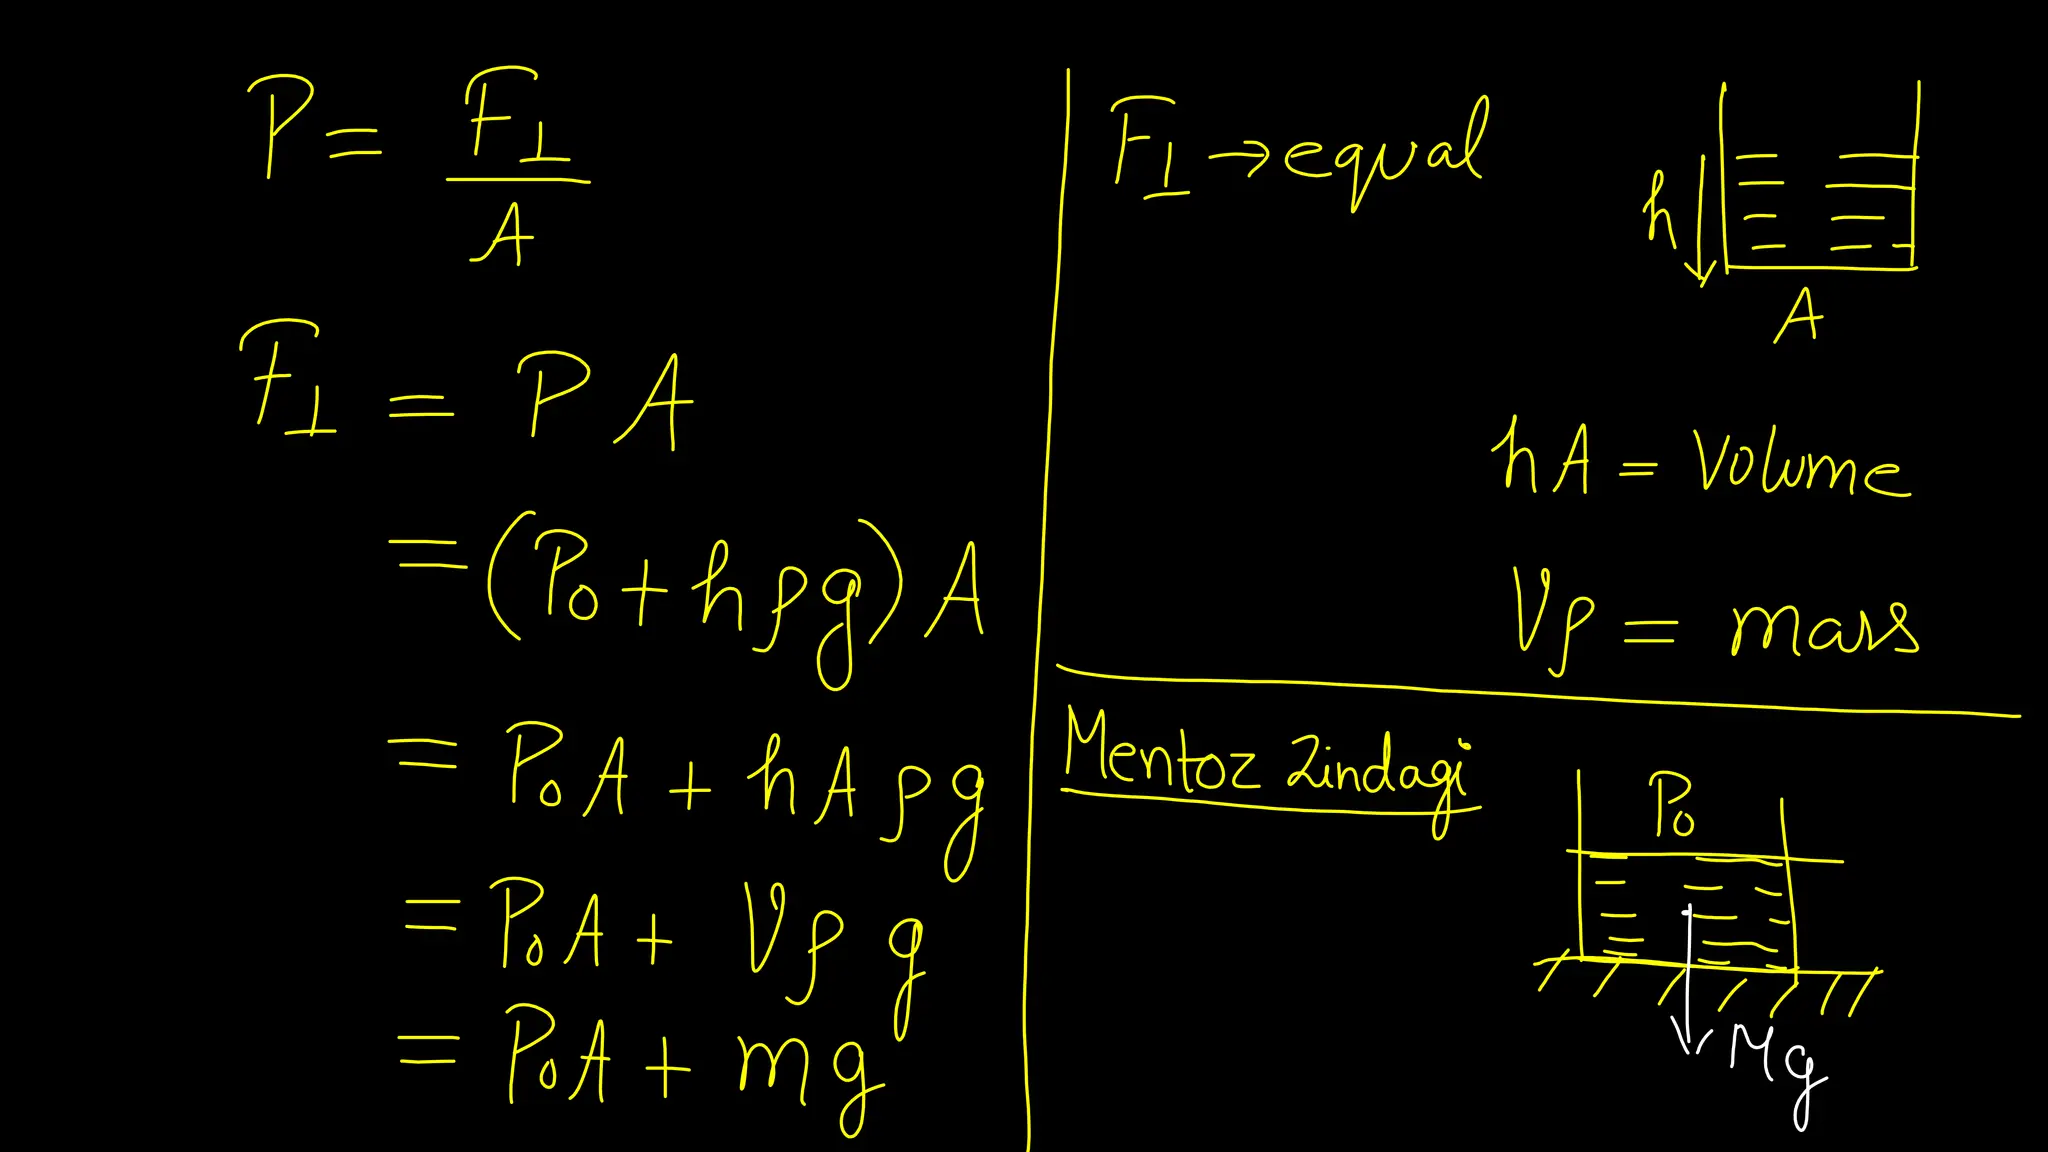 P = F⊥ / A
F⊥ = P A
= (P₀ + hρg) A
= P₀A + hAρg
= P₀A + Vρg
= P₀A + mg
F⊥ → equal
h
A
hA = Volume
Vρ = mass
Mentoz Zindagi
P₀
Mg